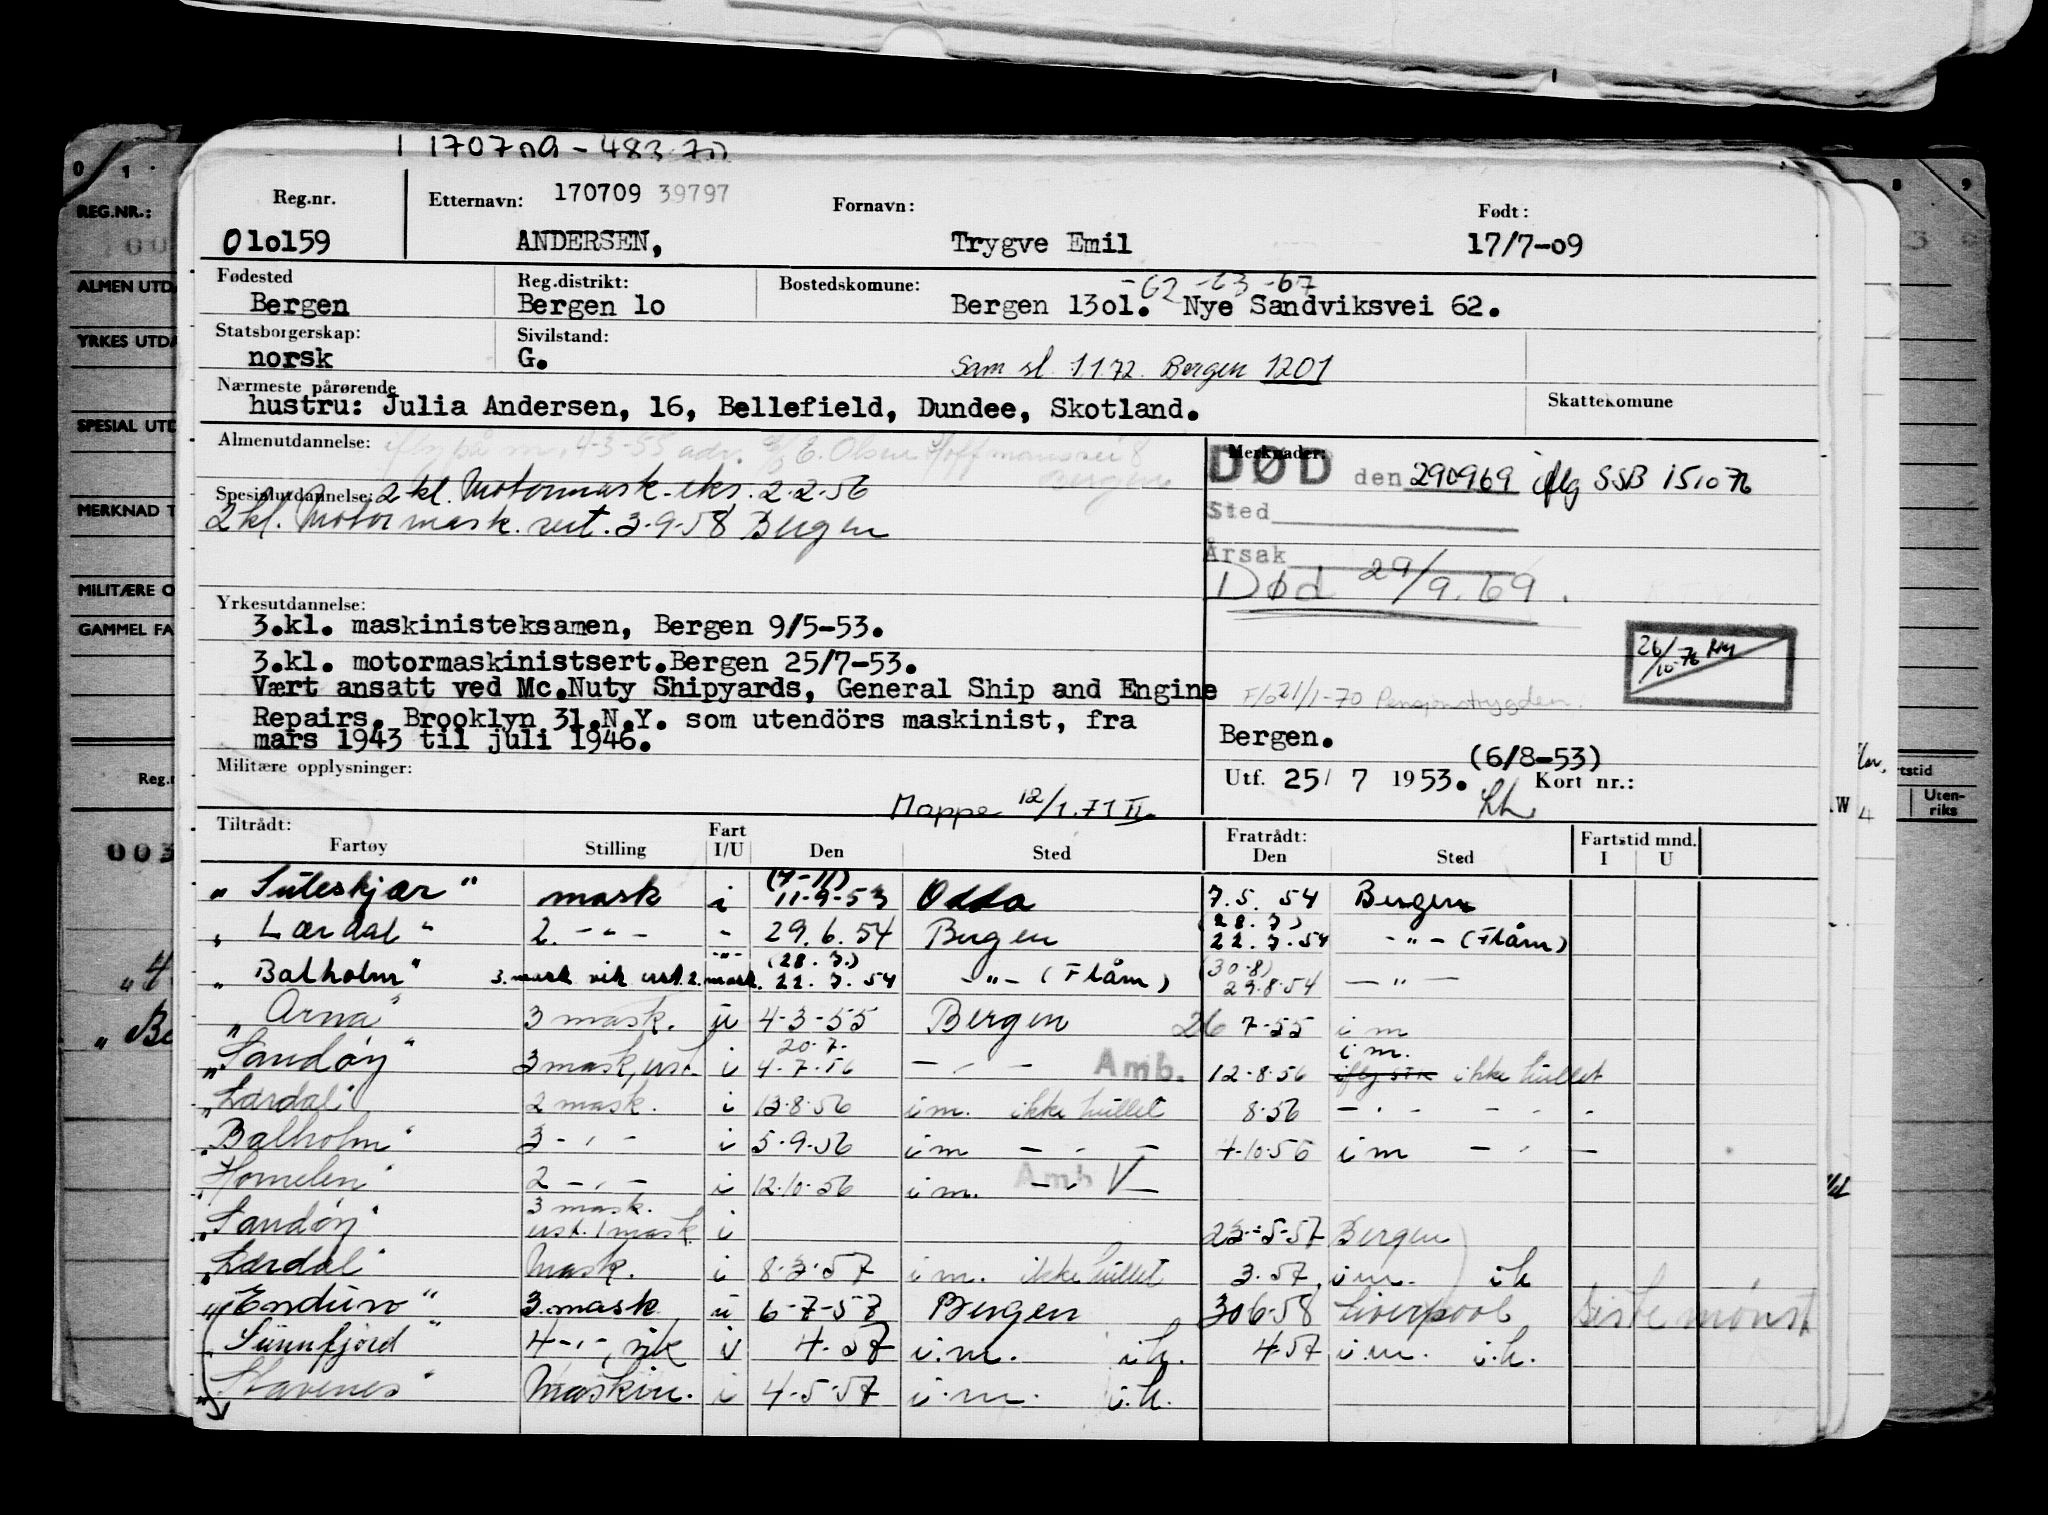 170709 - 483 70
Reg.nr. Etternavn: 170709 39797 Fornavn: Født:
010159 ANDERSEN, Trygve Emil 17/7-09
Fødested Reg.distrikt: Bostedskomune: -62 -63 -67
Bergen Bergen 10 Bergen 1301. Nye Sandviksvei 62.
Statsborgerskap: Sivilstand:
norsk G. Sam sl. 1 1 72. Bergen 1201
Nærmeste pårørende Skattekomune
hustru: Julia Andersen, 16, Bellefield, Dundee, Skotland.
Almenutdannelse: iflg på m. 4-3-55 adr. E. Olsen Hoffmansvei 8 Bergen
Merknader:
DØD den 290969 iflg SSB 151076
Spesialutdannelse: 2 kl. Motormask. eks. 2-2-56
2 kl. Motormask. sert. 3-9-58 Bergen
Sted
Årsak
Død 29/9.69.
Yrkesutdannelse:
3.kl. maskinisteksamen, Bergen 9/5-53.
3.kl. motormaskinistsert.Bergen 25/7-53.
Vært ansatt ved Mc.Nuty Shipyards, General Ship and Engine
Repairs, Brooklyn 31.N.Y. som utendörs maskinist, fra
mars 1943 til juli 1946.
26/10-76
21/1-70 Pensjonstrygden.
Bergen.
(6/8-53)
Utf. 25/ 7 1953. Kort nr.:
Militære opplysninger:
Mappe 12/1.71 II.
Tiltrådt: Fratrådt: Fartstid mnd.
Fartøy Stilling Fart I/U Den Sted Den Sted I U
"Suleskjær" mask i (7-11) 11-9-53 Odda 7.5.54 Bergen
"Lærdal" 2. - " - - 29.6.54 Bergen (28.7) 22.7.54 - " - (Flåm)
"Balholm" 3. mask vik ust. 2. mask. - " - (28.7.) 22.7.54 - " - (Flåm) (30-8) 29.8.54 - " -
"Arna" 3 mask. u 4-3-55 Bergen 26 7-55 i m
"Sandøy" 3 mask, ust. i 20.7. 4.7.56 - " - Amb. 12-8-56 i m. ikke hullet
"Lærdal" 2 mask. i 13-8-56 i m. ikke hullet 8-56 - " - - " -
"Balholm" 3 - " - i 5-9-56 i m - " - 4-10-56 i m - " -
"Hornelen" 2 - " - i 12-10-56 i m. - " - Amb V
"Sandøy" 3 mask. ust. 1 mask. i 23-5-57 Bergen
"Lærdal" Mask. i 8-3-57 i m. ikke hullet 3.57 i m. i h
"Enduro" 3.mask u 6-7-57 Bergen 30 6-58 Liverpool Siste mønst
"Sunnfjord" 4 - " -, vik i 4-57 i.m. i.h. 4-57 i.m. i.h.
"Stavenes" Maskin. i 4-5-57 i.m. i.h.
0 1
REG.NR.:
ALMEN UTD
YRKES UTDA
SPESIAL UTD
MERKNAD T
MILITÆRE O
GAMMEL FA
Reg.n
003
"4
"Be
8 9
rtstid
Uten-
riks